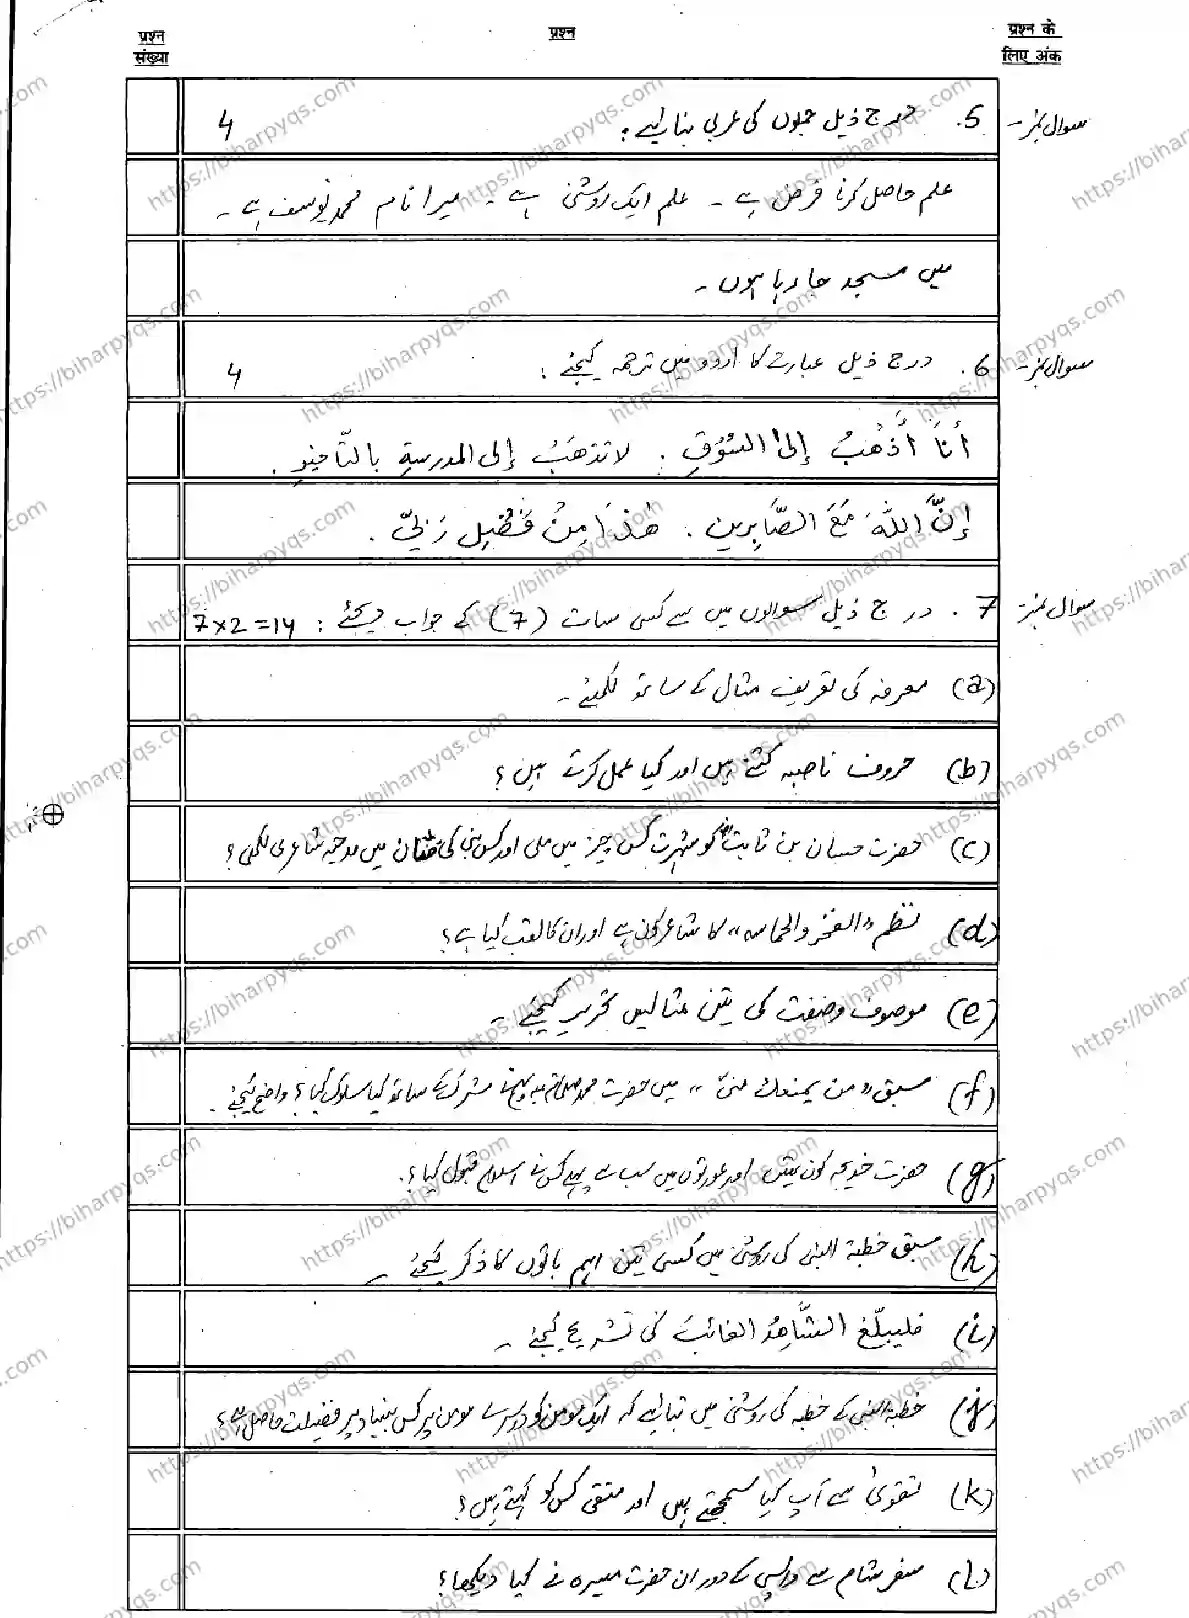 प्रश्न संख्या
प्रश्न
प्रश्न के लिए अंक
سوال نمبر- 5. درج ذیل جملوں کی عربی بنائیے : 4
علم حاصل کرنا فرض ہے ۔ علم ایک روشنی ہے ۔ میرا نام محمد یوسف ہے ۔
میں مسجد جا رہا ہوں ۔
سوال نمبر- 6. درج ذیل عبارت کا اردو میں ترجمہ کیجئے : 4
أَنَا أَذْهَبُ إلى السُّوْقِ . لا تذهَبُ إلى المدرسةِ بالتّاخيرِ .
إنَّ اللهَ مَعَ الصَّابِرين . هٰذَا مِنْ فَضْلِ رَبِّيْ .
سوال نمبر- 7. درج ذیل سوالوں میں سے کسی سات (7) کے جواب دیجئے : 7x2=14
(a) معرفہ کی تعریف مثال کے ساتھ لکھئے ۔
(b) حروف ناصبہ کتنے ہیں اور کیا عمل کرتے ہیں ؟
(c) حضرت حسان بن ثابتؓ کو شہرت کس چیز میں ملی اور کس نبی کی شان میں مدحیہ شاعری لکھی ؟
(d) نظم "الفخر والحماسہ" کا شاعر کون ہے اور ان کا لقب کیا ہے ؟
(e) موصوف و صفت کی تین مثالیں تحریر کیجئے ۔
(f) سبق "من يمنعك منّی" میں حضرت محمد صلی اللہ علیہ وسلم نے مشرک کے ساتھ کیا سلوک کیا ؟ واضح کیجئے .
(g) حضرت خدیجہ کون تھیں اور عورتوں میں سب سے پہلے کس نے اسلام قبول کیا ؟
(h) سبق خطبة النبی کی روشنی میں کسی تین اہم باتوں کا ذکر کیجئے ۔
(i) فليبلّغ الشَّاهِدُ الغائبَ کی تشریح کیجئے ۔
(j) خطبة النبی کے خطبہ کی روشنی میں بتائیے کہ ایک مومن کو دوسرے مومن پر کس بنیاد پر فضیلت حاصل ہے ؟
(k) تقویٰ سے آپ کیا سمجھتے ہیں اور متقی کس کو کہتے ہیں ؟
(l) سفر شام سے واپسی کے دوران حضرت میسرہ نے کیا دیکھا ؟
https://biharpyqs.com